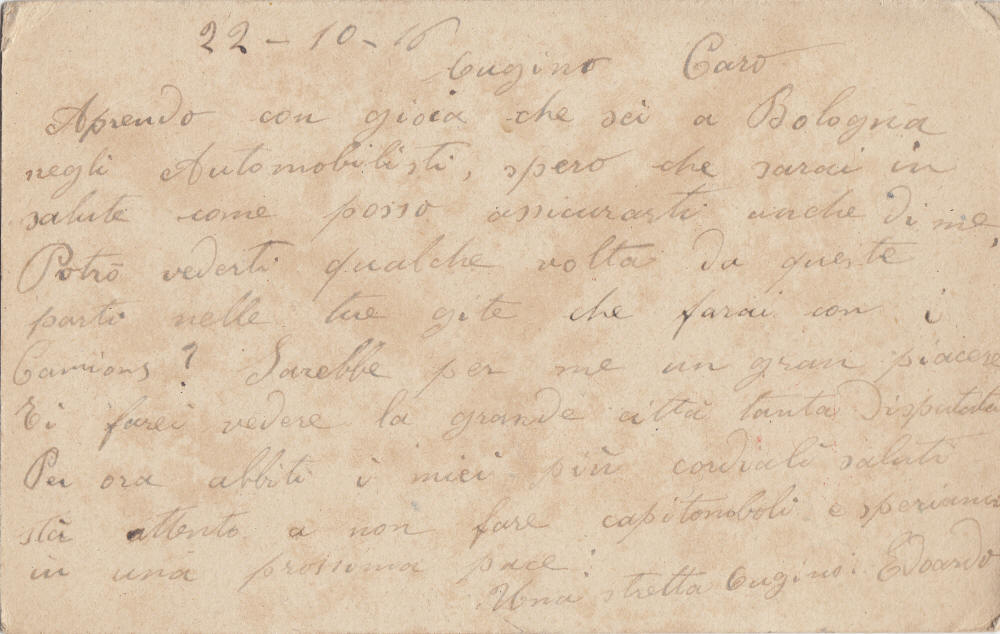 22-10-16
Cugino Caro
Aprendo con gioia che sei a Bologna
negli Automobilisti, spero che sarai in
salute come posso assicurarti anche di me,
Potrò vederti qualche volta da queste
parti nelle tue gite che farai con i
Camions? Sarebbe per me un gran piacere
Ti farei vedere la grande città tanta disputata
Per ora abbiti i miei più cordiali saluti
stà attento a non fare capitonboli e speriamo
in una prossima pace.
Una stretta Cugino: Edoardo